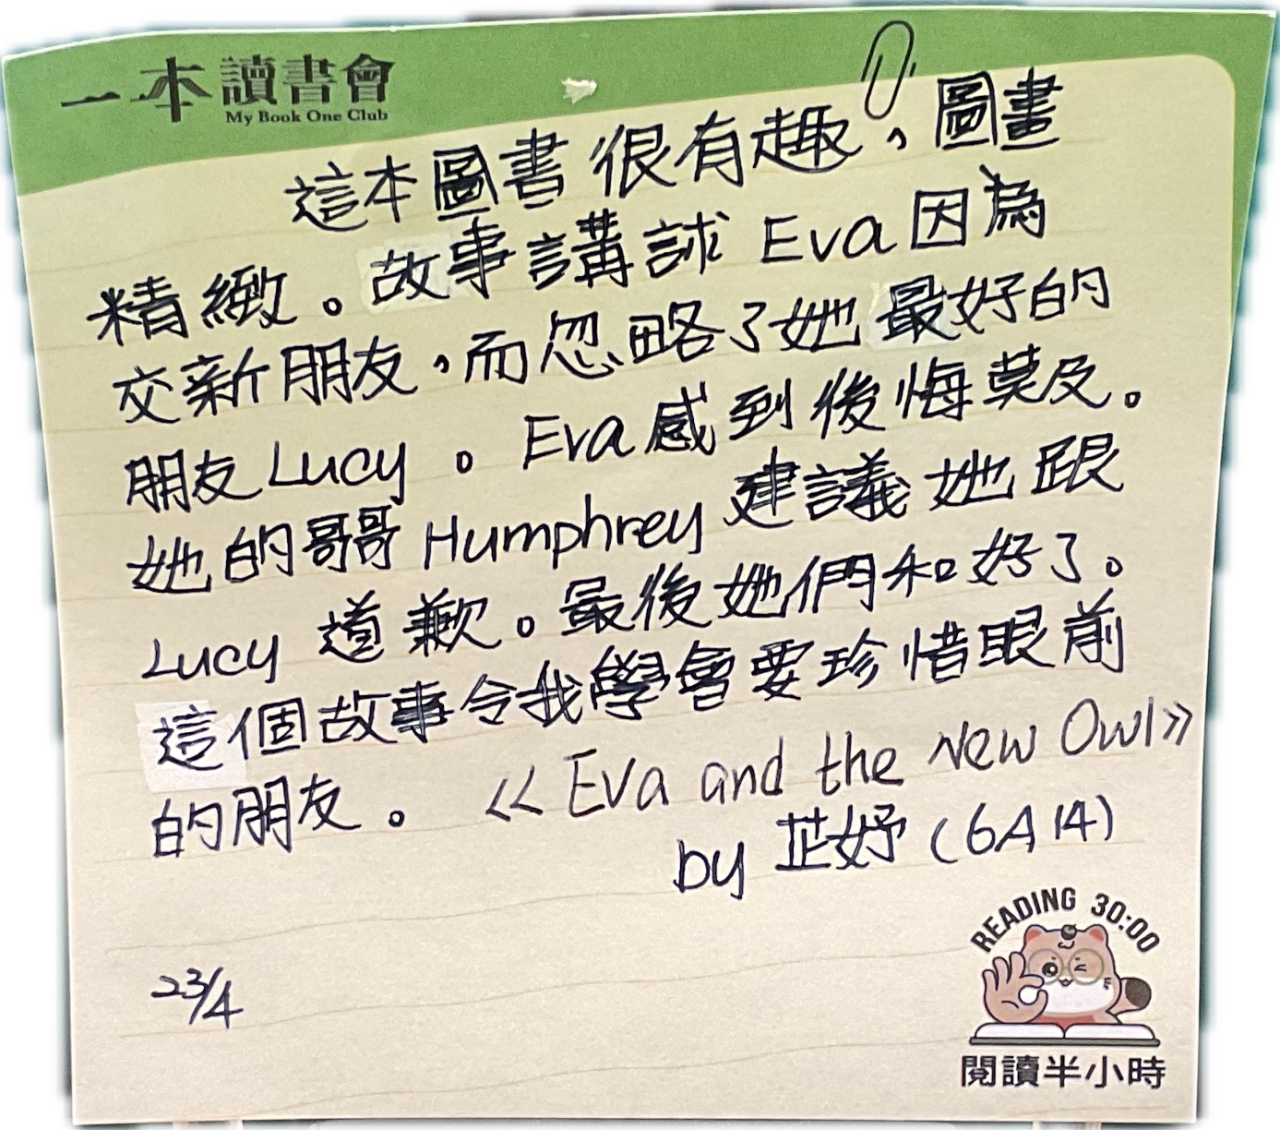 一本讀書會
My Book One Club
這本圖書很有趣，圖畫
精緻。故事講述Eva因為
交新朋友，而忽略了她最好的
朋友Lucy。Eva感到後悔莫及。
她的哥哥Humphrey建議她跟
Lucy道歉。最後她們和好了。
這個故事令我學會要珍惜眼前
的朋友。《Eva and the New Owl》
by 芷妤(6A14)
23/4
READING 30:00
閱讀半小時